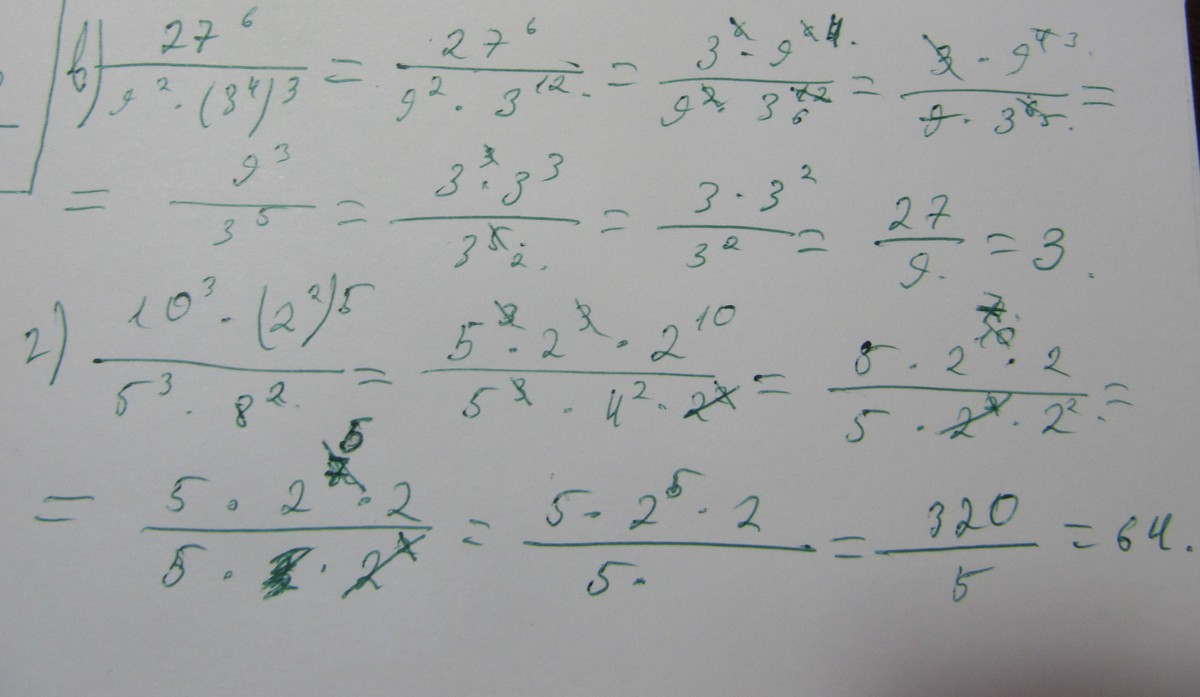 в) 27^6 / 9^2 · (3^4)^3 = 27^6 / 9^2 · 3^12 = 3 · 9^4 / 9^2 · 3^6 = 3 · 9^3 / 9 · 3^5 =
= 9^3 / 3^5 = 3^3 · 3^3 / 3^5 = 3 · 3^2 / 3^2 = 27 / 9 = 3.
г) 10^3 · (2^2)^5 / 5^3 · 8^2 = 5^3 · 2^3 · 2^10 / 5^3 · 4^2 · 2^2 = 5 · 2^7 · 2 / 5 · 2^2 · 2^2 =
= 5 · 2^5 · 2 / 5 · 2^2 = 5 · 2^5 · 2 / 5 · = 320 / 5 = 64.